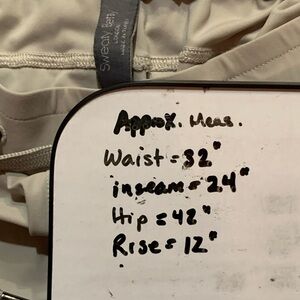 Sweaty Betty
LONDON
Approx. Meas.
Waist = 32"
inseam = 24"
Hip = 42"
Rise = 12"